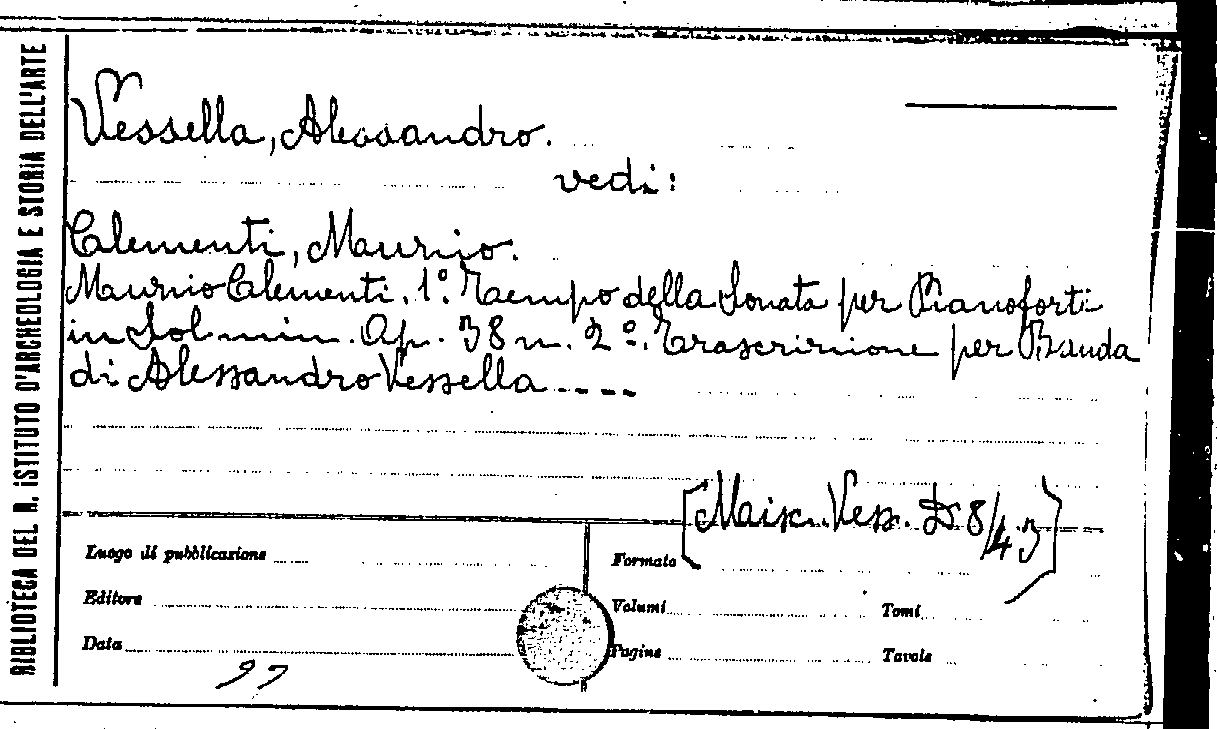 BIBLIOTECA DEL R. ISTITUTO D'ARCHEOLOGIA E STORIA DELL'ARTE
Vessella, Alessandro.
vedi:
Clementi, Muzio.
Muzio Clementi. 1º. Tempo della Sonata per Pianoforti
in Sol min. Op. 38 n. 2º. Trascrizione per Banda
di Alessandro Vessella - - - -
[Misc. Vess. D 8/43]
Luogo di pubblicazione
Formato
Editore
Volumi
Tomi
Data
Pagine
Tavole